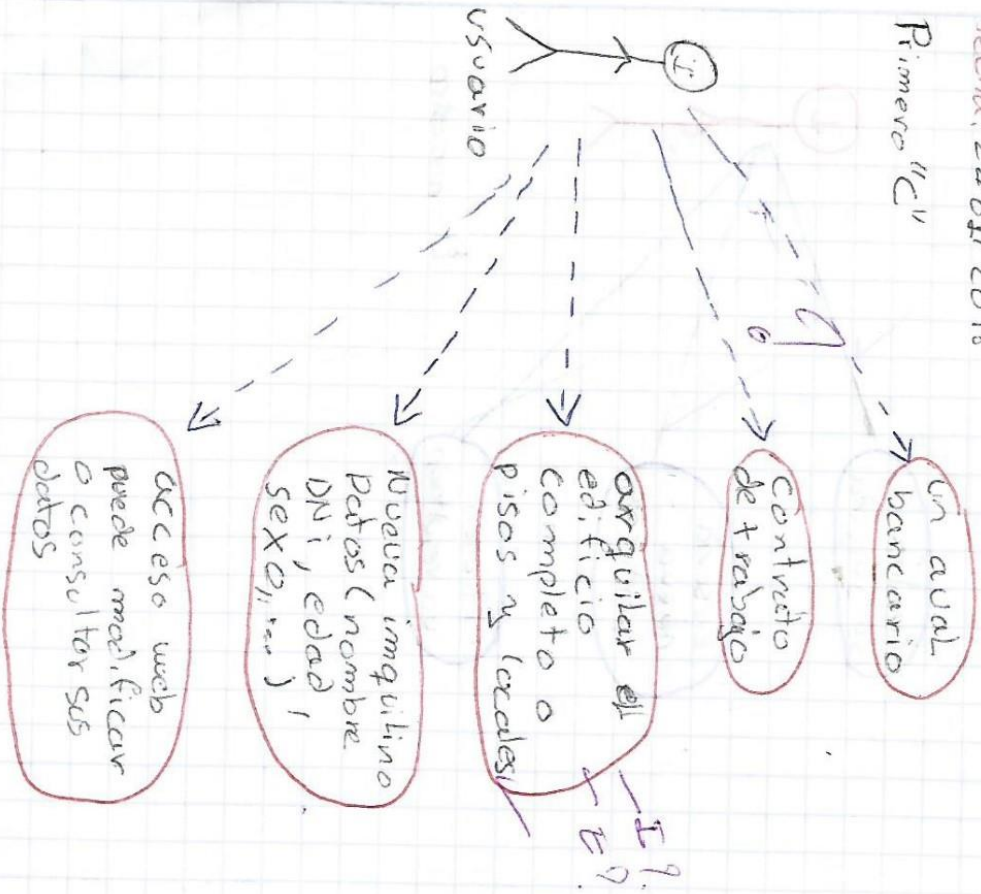 Primero "C"
usuario
un aval
bancario
Contrato
de trabajo
arquilar el
edificio
completo o
pisos y locales
I?
E?
Nueva imquilino
Datos (nombre
DNi, edad,
sexo, ...)
acceso web
puede modificar
o consultar sus
datos